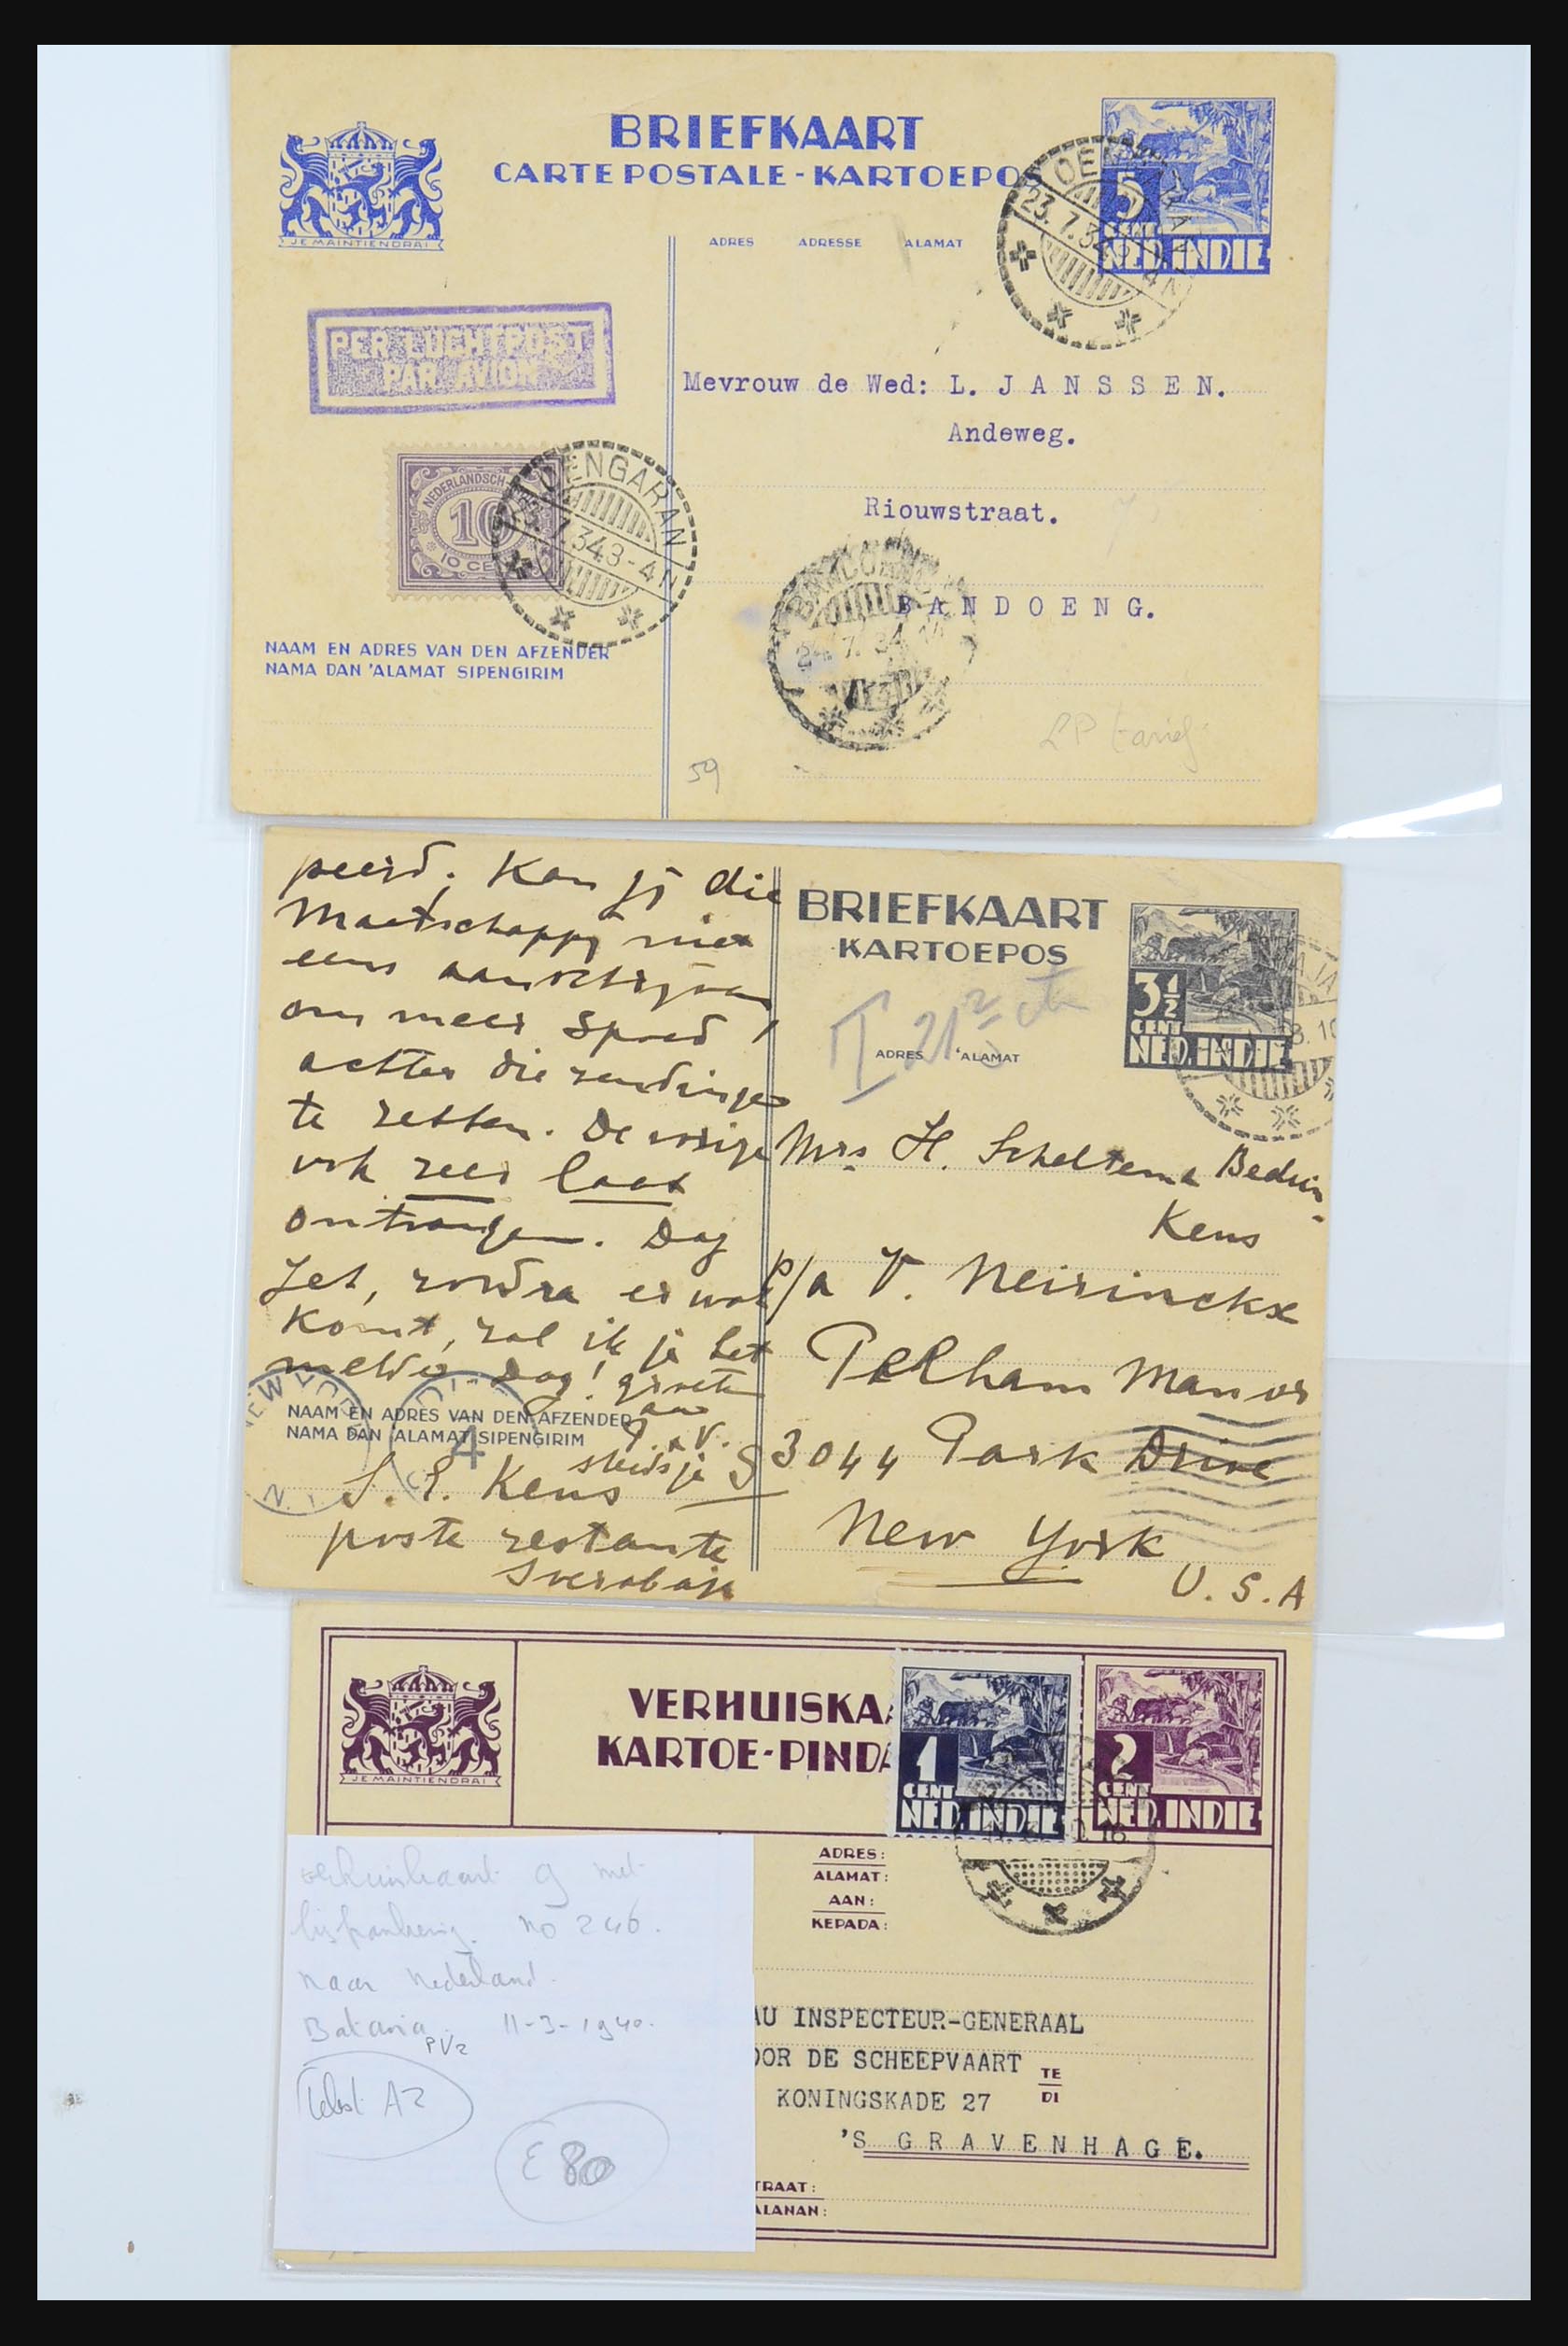 BRIEFKAART
CARTE POSTALE - KARTOEPOS
JE MAINTIENDRAI
5
CENT
NED. INDIE
23.7.34
ADRES ADRESSE ALAMAT
PER LUCHTPOST
PAR AVION
Mevrouw de Wed: L. JANSSEN.
Andeweg.
Riouwstraat.
BANDOENG.
NEDERLANDSCH-
10
10 CE
OENGARAN
.7.34 3-4N
NAAM EN ADRES VAN DEN AFZENDER
NAMA DAN 'ALAMAT SIPENGIRIM
LP tarief
59
peerd. Kan jij die
Maatschappij niet
eens aanschrijven
om meer spoed
achter die zendingen
te zetten. De vorige
ook zeer laat
ontvangen. Dag
Jet, zoodra er wat
komt, zal ik je het
melden Dag! groeten
aan
P. & V.
steeds je S
BRIEFKAART
KARTOEPOS
3½
CENT
NED. INDIE
T 21 cts
ADRES 'ALAMAT
Mrs H. Scheltema Beduin-
Kens
p/a V. Neirinckx
Pelham Manor
3044 Park Drive
New York
U.S.A
NEW YORK
N.Y.
4
NAAM EN ADRES VAN DEN AFZENDER
NAMA DAN 'ALAMAT SIPENGIRIM
S. E. Kens
poste restante
Soerabaja
VERHUISKA
KARTOE-PINDA
JE MAINTIENDRAI
1
CENT
NED. INDIE
2
CENT
NED. INDIE
ADRES:
ALAMAT:
AAN:
KEPADA:
verhuiskaart 9 met
bijfrankering. no 246.
naar Nederland.
Batavia 11-3-1940.
PV2
tekst A2
E 80
AU INSPECTEUR-GENERAAL
OOR DE SCHEEPVAART
TE
DI
KONINGSKADE 27
'S GRAVENHAGE.
TRAAT:
ALANAN: